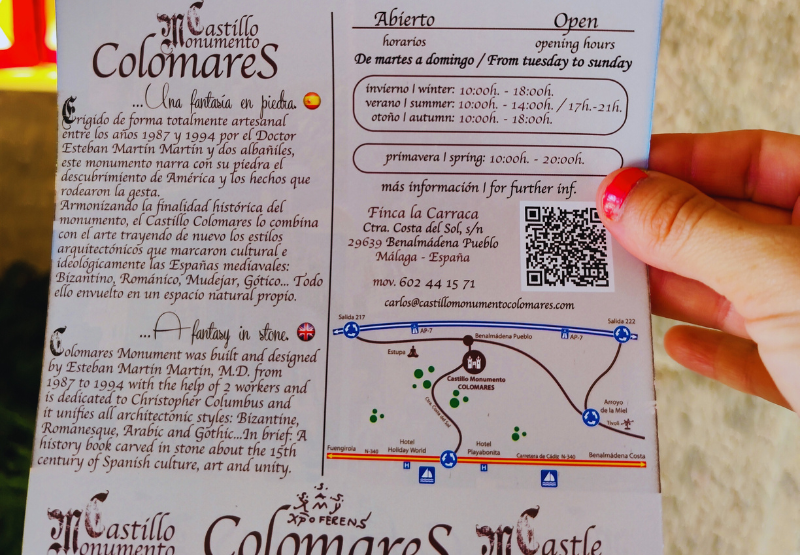 Castillo
Monumento
ColomareS
...Una fantasía en piedra.
Erigido de forma totalmente artesanal
entre los años 1987 y 1994 por el Doctor
Esteban Martín Martín y dos albañiles,
este monumento narra con su piedra el
descubrimiento de América y los hechos que
rodearon la gesta.
Armonizando la finalidad histórica del
monumento, el Castillo Colomares lo combina
con el arte trayendo de nuevo los estilos
arquitectónicos que marcaron cultural e
ideológicamente las Españas mediavales:
Bizantino, Románico, Mudejar, Gótico... Todo
ello envuelto en un espacio natural propio.
...A fantasy in stone.
Colomares Monument was built and designed
by Esteban Martin Martin, M.D. from
1987 to 1994 with the help of 2 workers and
is dedicated to Christopher Columbus and
it unifies all architectonic styles: Bizantine,
Romanesque, Arabic and Gothic...In brief: A
history book carved in stone about the 15th
century of Spanish culture, art and unity.
Abierto Open
horarios opening hours
De martes a domingo / From tuesday to sunday
invierno | winter: 10:00h. - 18:00h.
verano | summer: 10:00h. - 14:00h. / 17h.-21h.
otoño | autumn: 10:00h. - 18:00h.
primavera | spring: 10:00h. - 20:00h.
más información | for further inf.
Finca la Carraca
Ctra. Costa del Sol, s/n
29639 Benalmádena Pueblo
Málaga - España
mov. 602 44 15 71
carlos@castillomonumentocolomares.com
Salida 217
Salida 222
AP-7
Benalmádena Pueblo
AP-7
Estupa
Castillo Monumento
COLOMARES
Ctra. Costa del Sol
Arroyo
de la Miel
Tivoli
Hotel
Holiday World
Hotel
Playabonita
Fuengirola
N-340
Carretera de Cádiz N-340
Benalmádena Costa
H
H
Castillo
Monumento
XPO FERENS
ColomareS
Castle